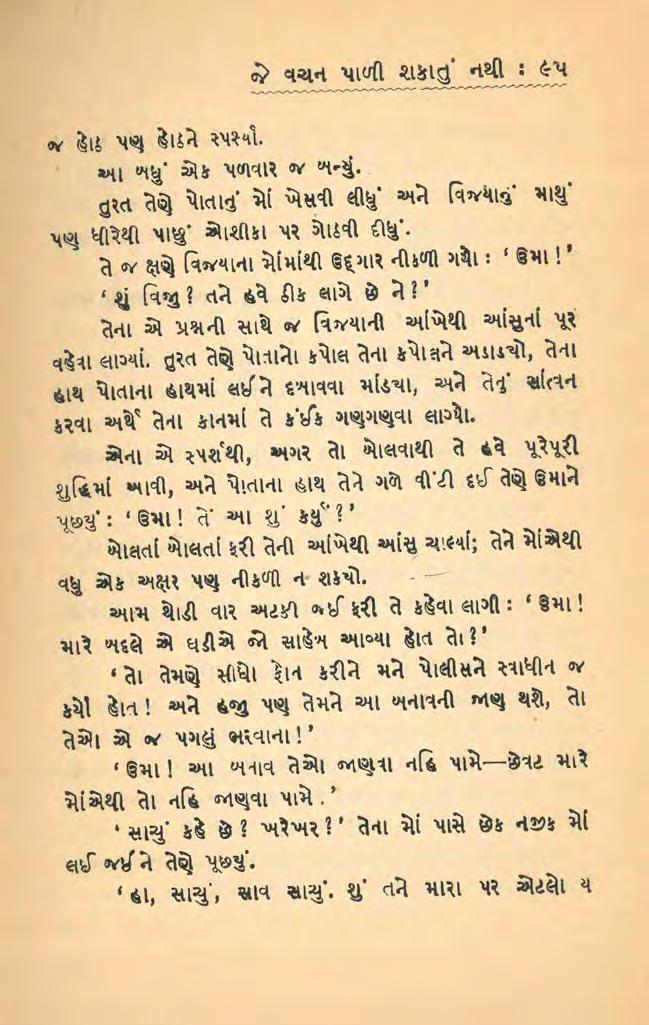 જે વચન પાળી શકાતું નથી : ૯૫
જ હોઠ પણ હોઠને સ્પર્શ્યા.
આ બધું એક પળવાર જ બન્યું.
તુરત તેણે પોતાનું મોં ખેસવી લીધું અને વિજયાનું માથું
પણ ધીરેથી પાછું ઓશીકા પર ગોઠવી દીધું.
તે જ ક્ષણે વિજયાના મોંમાંથી ઉદ્ગાર નીકળી ગયો : ‘ ઉમા ! ’
‘ શું વિજુ ? તને હવે ઠીક લાગે છે ને ? ’
તેના એ પ્રશ્નની સાથે જ વિજયાની આંખેથી આંસુનાં પૂર
વહેવા લાગ્યાં. તુરત તેણે પોતાનો કપોલ તેના કપોલને અડાડ્યો, તેના
હાથ પોતાના હાથમાં લઈને દબાવવા માંડ્યા, અને તેનું સાંત્વન
કરવા અર્થે તેના કાનમાં તે કંઈક ગણગણવા લાગ્યો.
એના એ સ્પર્શથી, અગર તો બોલવાથી તે હવે પૂરેપૂરી
શુદ્ધિમાં આવી, અને પોતાના હાથ તેને ગળે વીંટી દઈ તેણે ઉમાને
પૂછ્યું : ‘ ઉમા ! તેં આ શું કર્યું ? ’
બોલતાં બોલતાં ફરી તેની આંખેથી આંસુ ચાલ્યાં; તેને મોંએથી
વધુ એક અક્ષર પણ નીકળી ન શક્યો.
આમ થોડી વાર અટકી જઈ ફરી તે કહેવા લાગી : ‘ ઉમા !
મારે બદલે એ ઘડીએ જો સાહેબ આવ્યા હોત તો ? ’
‘ તો તેમણે સીધો ફોન કરીને મને પોલીસને સ્વાધીન જ
કર્યો હોત ! અને હજુ પણ તેમને આ બનાવની જાણ થશે, તો
તેઓ એ જ પગલું ભરવાના ! ’
‘ ઉમા ! આ બનાવ તેઓ જાણવા નહિ પામે—છેવટ મારે
મોંએથી તો નહિ જાણવા પામે . ’
‘ સાચું કહે છે ? ખરેખર ? ’ તેના મોં પાસે છેક નજીક મોં
લઈ જઈને તેણે પૂછ્યું.
‘ હા, સાચું, સાવ સાચું. શું તને મારા પર એટલો ય